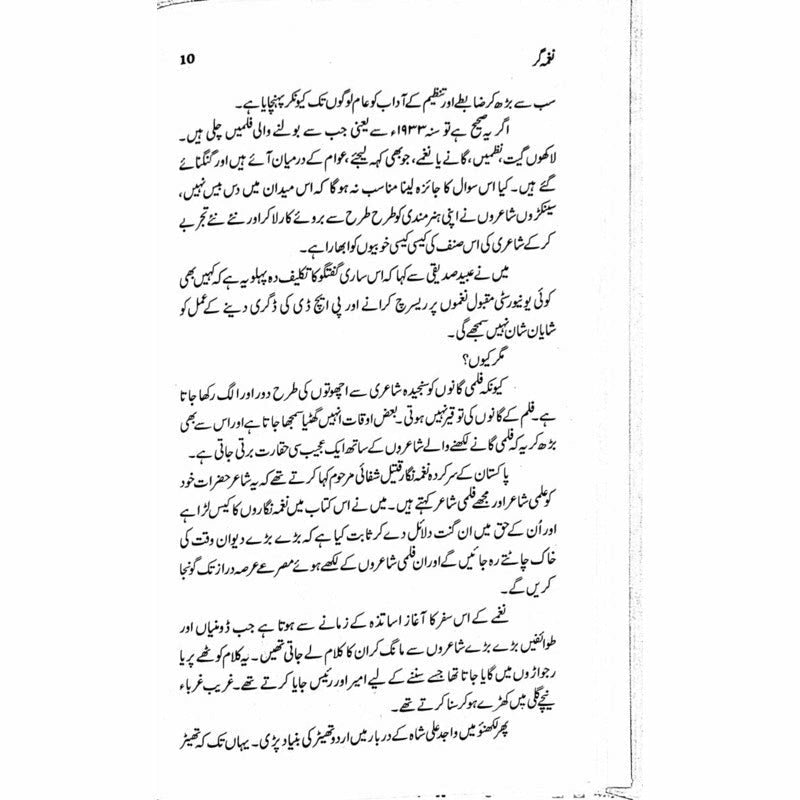 نغمہ گر
10
سب سے بڑھ کر ضابطے اور تنظیم کے آداب کو عام لوگوں تک کیونکر پہنچایا ہے۔
اگر یہ صحیح ہے تو سنہ ۱۹۳۳ء سے یعنی جب سے بولنے والی فلمیں چلی ہیں۔
لاکھوں گیت، نظمیں، گانے یا نغمے، جو بھی کہہ لیجئے، عوام کے درمیان آئے ہیں اور گنگنائے
گئے ہیں۔ کیا اس سوال کا جائزہ لینا مناسب نہ ہو گا کہ اس میدان میں دس بیس نہیں،
سینکڑوں شاعروں نے اپنی ہنرمندی کو طرح طرح سے بروئے کار لا کر اور نئے نئے تجربے
کر کے شاعری کی اس صنف کی کیسی کیسی خوبیوں کو ابھارا ہے۔
میں نے عبید صدیقی سے کہا کہ اس ساری گفتگو کا تکلیف دہ پہلو یہ ہے کہ کہیں بھی
کوئی یونیورسٹی مقبول نغموں پر ریسرچ کرانے اور پی ایچ ڈی کی ڈگری دینے کے عمل کو
شایان شان نہیں سمجھے گی۔
مگر کیوں؟
کیونکہ فلمی گانوں کو سنجیدہ شاعری سے اچھوتوں کی طرح دور اور الگ رکھا جاتا
ہے۔ فلم کے گانوں کی توقیر نہیں ہوتی۔ بعض اوقات انہیں گھٹیا سمجھا جاتا ہے اور اس سے بھی
بڑھ کر یہ کہ فلمی گانے لکھنے والے شاعروں کے ساتھ ایک عجیب سی حقارت برتی جاتی ہے۔
پاکستان کے سرکردہ نغمہ نگار قتیل شفائی مرحوم کہا کرتے تھے کہ یہ شاعر حضرات خود
کو علمی شاعر اور مجھے فلمی شاعر کہتے ہیں۔ میں نے اس کتاب میں نغمہ نگاروں کا کیس لڑا ہے
اور اُن کے حق میں ان گنت دلائل دے کر ثابت کیا ہے کہ بڑے بڑے دیوان وقت کی
خاک چانٹتے رہ جائیں گے اور ان فلمی شاعروں کے لکھے ہوئے مصرعے عرصہ دراز تک گونجا
کریں گے۔
نغمے کے اس سفر کا آغاز اساتذہ کے زمانے سے ہوتا ہے جب ڈومنیاں اور
طوائفیں بڑے بڑے شاعروں سے مانگ کر ان کا کلام لے جاتی تھیں۔ یہ کلام کوٹھے پر یا
رجواڑوں میں گایا جاتا تھا جسے سننے کے لیے امیر اور رئیس جایا کرتے تھے۔ غریب غرباء
نیچے گلی میں کھڑے ہو کر سنا کرتے تھے۔
پھر لکھنؤ میں واجد علی شاہ کے دربار میں اردو تھیٹر کی بنیاد پڑی۔ یہاں تک کہ تھیٹر